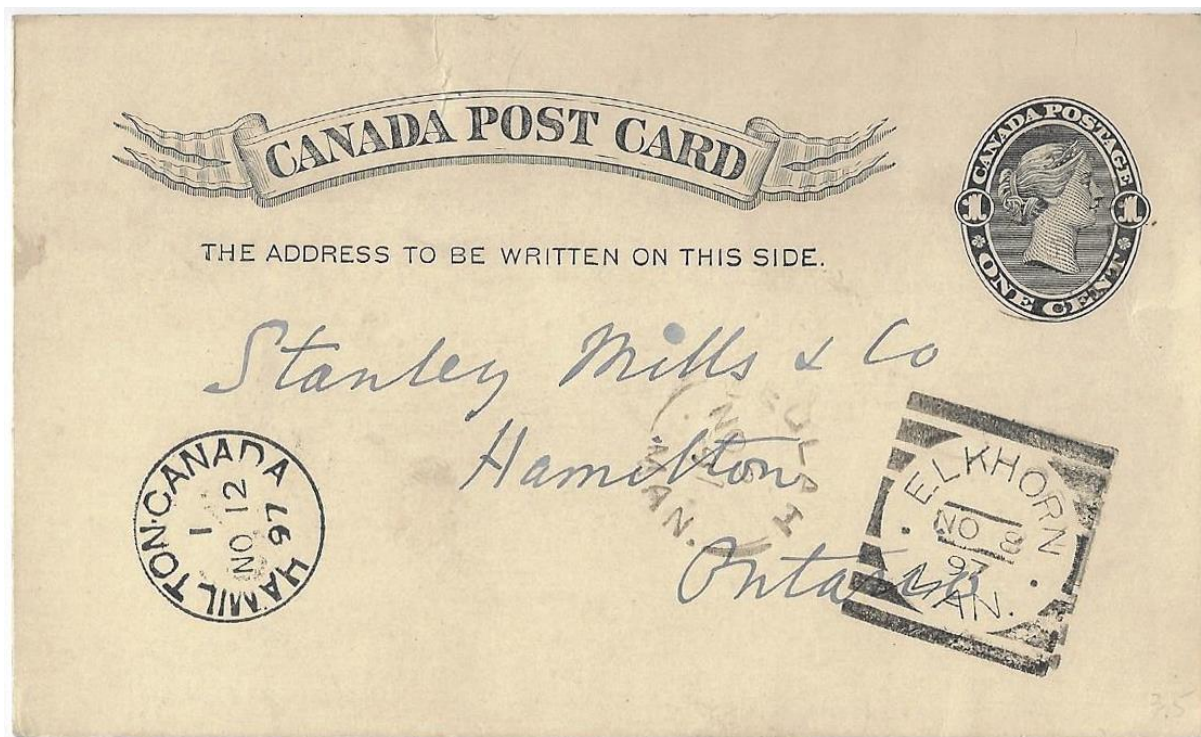 CANADA POST CARD
CANADA POSTAGE
1 1
ONE CENT
THE ADDRESS TO BE WRITTEN ON THIS SIDE.
Stanley Mills & Co
Hamilton
Ontario
HAMILTON·CANADA
1
NO 12
97
MAN.
NO
ELKHORN
NO 8
97
MAN.
35